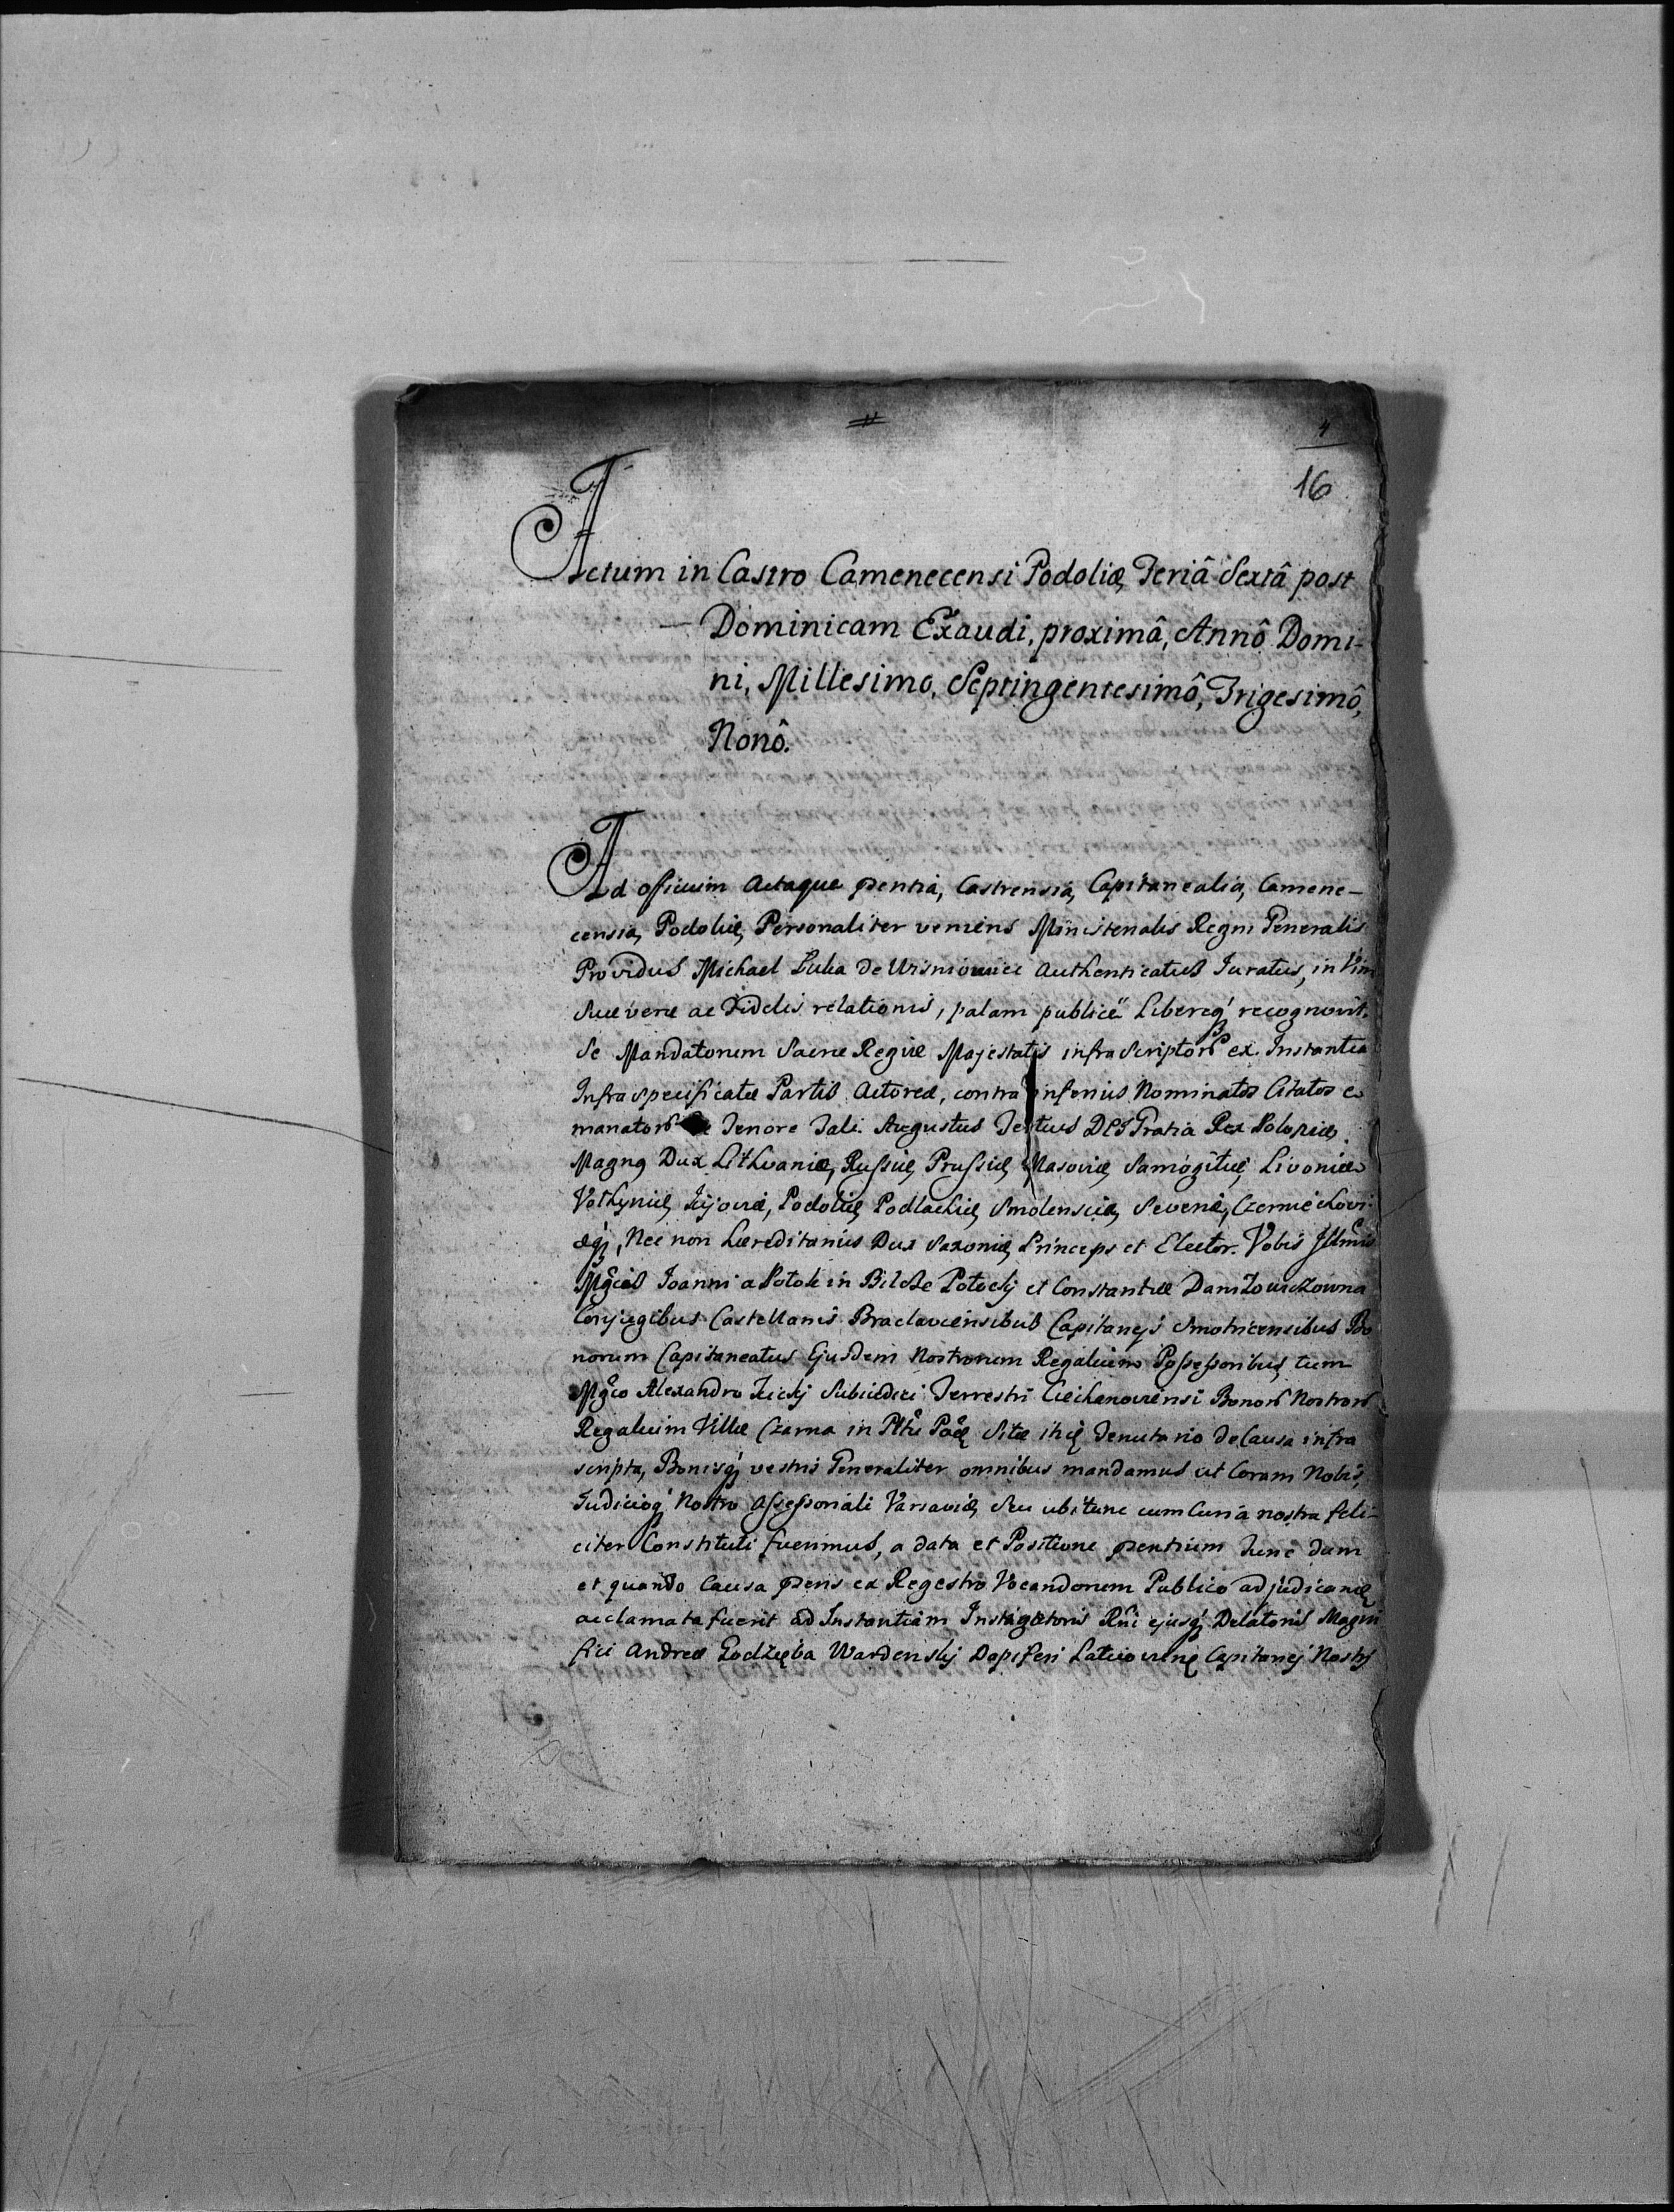 #
4
16
Actum in Castro Camenecensi Podoliæ, Feriâ Sextâ post
Dominicam Exaudi, proximâ, Annô Domi-
ni, Millesimo, Septingentesimô, Trigesimô,
Nonô.
Ad officium Actaque pentia, Castrensia, Capitanealia, Camene-
censia, Podoliæ, Personaliter veniens Ministerialis Regni Generalis
Providus Michael de Wisniowice Authenticatus Juratus, in Vim
Suæ veræ ac Fidelis relationis, palam publicè Libereqꝫ recognovit.
Se Mandatorum Sacræ Regiæ Majestatis infra Scriptor ex Instantia
Infra specificatæ Partis Actoreæ, contra inferius Nominatos Citatos e-
manator Tenore Tali. Augustus Tertius DEI Gratia Rex Poloniæ.
Magnꝫ Dux Lithvaniæ, Russiæ, Prussiæ, Masoviæ, Samogitiæ, Livoniæ
Volhyniæ, Kijoviæ, Podoliæ, Podlachiæ, Smolensciæ, Severiæ, Czerniechovi-
æqꝫ, Nec non Hæreditarius Dux Saxoniæ, Princeps et Elector. Vobis Jllmis
Mgcis Joanni a Potok in Bilcze Potocky et Constantiæ Daniłowiczowna
Conjugibus Castellanis Braclaviensibus Capitaneis Smotricensibus Bo
norum Capitaneatus Ejusdem Nostrorum Regalium Possessoribus, tum
Mgco Alexandro Subiudici Terrestri Ciechanoviensi Bonor Nostror
Regalium Villæ Czarna in Pltu Sitæ Tenutario de Causa infra
scripta, Bonisqꝫ vestris Generaliter omnibus mandamus ut Coram Nobis,
Judicioqꝫ Nostro Assessoriali Varsaviæ, Seu ubi tunc cum Curia nostra feli-
citer Constituti fuerimus, a data et Positione pentium tunc dum
et quando Causa pens ex Regestro Vocandorum Publico adjudicandæ
acclamata fuerit ad Instantiam Instigatoris Rni ejusqꝫ Delatoris Magni
fici Andreæ Godzięba Wardensky Dapiferi Capitanei Nostri